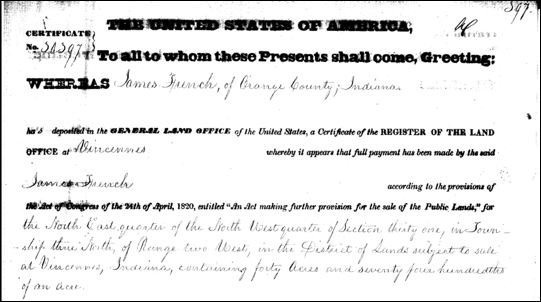 397.
THE UNITED STATES OF AMERICA,
CERTIFICATE
No.
To all to whom these Presents shall come, Greeting:
WHEREAS James French, of Orange County, Indiana
ha s deposited in the GENERAL LAND OFFICE of the United States, a Certificate of the REGISTER OF THE LAND
OFFICE at Vincennes whereby it appears that full payment has been made by the said
James French according to the provisions of
the Act of Congress of the 24th of April, 1820, entitled "An Act making further provision for the sale of the Public Lands," for
the North East quarter of the North West quarter of Section thirty one, in Town-
ship three North, of Range two West, in the District of Lands subject to sale
at Vincennes, Indiana, containing forty Acres and seventy four hundredths
of an acre.